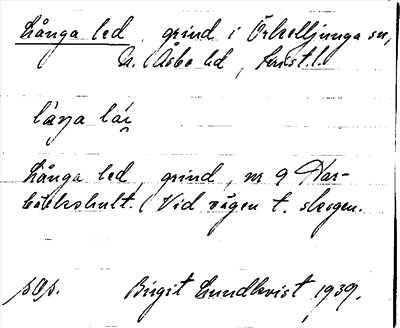 Långa led, grind i Örkelljunga sn,
N. Åsbo hd, Krist. l.
låŋa lé
Långa led, grind, nr 9 Har-
bäckshult. (Vid vägen t. skogen.
pOp. Birgit Lundkvist 1939.